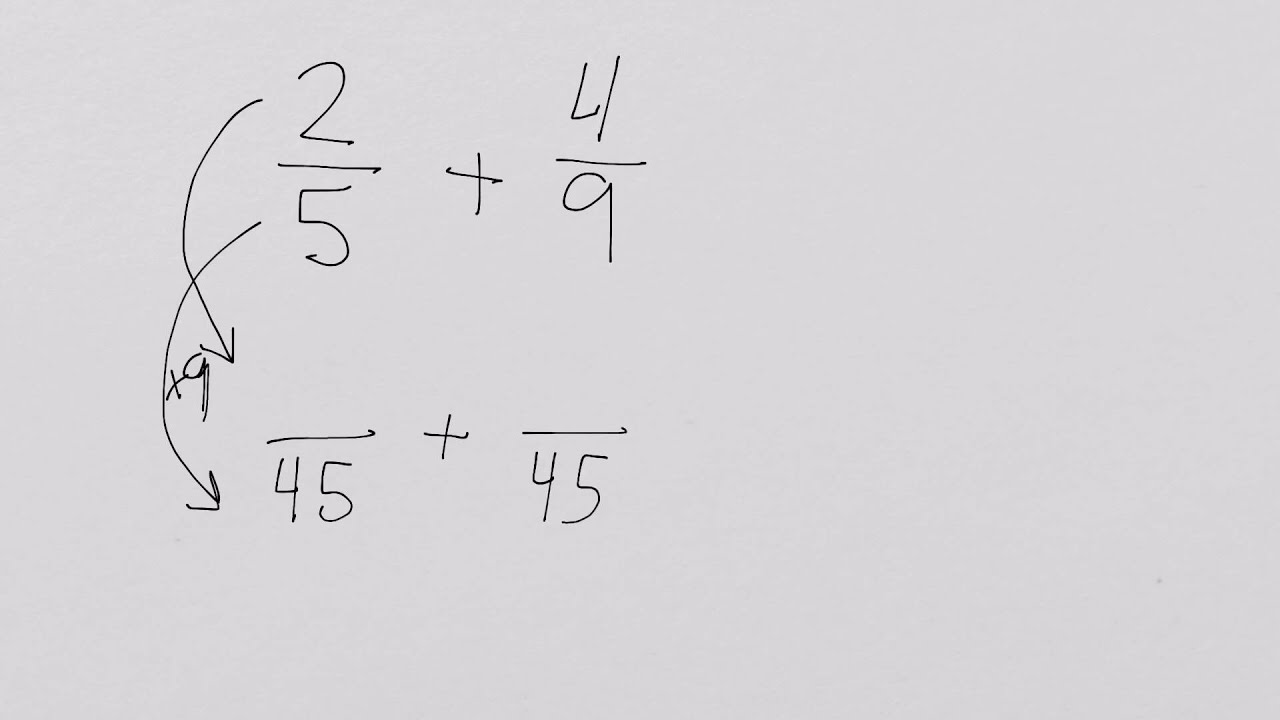 2/5 + 4/9
×9
/45 + /45